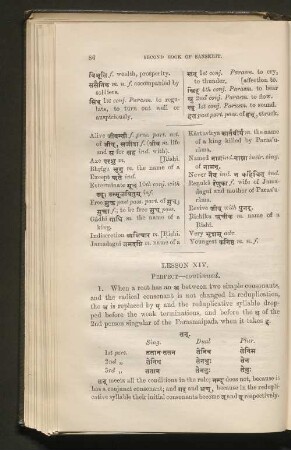 86 SECOND BOOK OF SANSKRIT.
विभूति f. wealth, prosperity.
ससैनिक m. n. f. accompanied by
soldiers.
सिध् 1st conj. Parasm. to regu-
late, to turn out well or
auspiciously.
1st conj. Parasm. to cry,
to thunder, [affection to.
स्निह् 4th conj. Parasm. to bear
2nd conj. Parasm. to flow.
1st conj. Parasm. to sound.
past pass. part. of struck.
Alive जीवन्ती f. pres. part. act.
of जीव्, f. m. life
and स for सह ind. with).
Axe परशु m. [Rishi.
Bhrigu भृगु m. the name of a
Except ऋते ind.
Exterminate 10th conj. with
Free मुक्त past pass. part. of मुच्,
मुक्ता f. to be free मुच् pass.
Gâdhi गाधि m. the name of a
king.
Indiscretion अविचार m. [Rishi.
Jamadagni जमदग्नि m. name of a
Kârtavîrya कार्तवीर्य m. the name
of a king killed by Paras'u-
râma.
Named नाम्ना instr. sing.
of नामन्.
Never नैव ind. न कर्हिचित् ind.
Renukâ रेणुका f. wife of Jama-
dagni and mother of Paras'u-
râma.
Revive जीव् with पुनर्.
Richîka ऋचीक m. name of a
Rishi.
Very भृशम् adv.
Youngest कनिष्ठ m. n. f.
LESSON XIV.
PERFECT—continued.
1. When a root has an अ between two simple consonants,
and the radical consonant is not changed in reduplication,
the अ is replaced by ए and the reduplicative syllable dropped
before the weak terminations, and before इथ of the
2nd person singular of the Parasmaipada when it takes इ.
तन्.
Sing. Dual Plur.
1st pers. ततान-ततन तेनिव तेनिम
2nd „ तेनिथ तेनथुः तेन
3rd „ ततान तेनतुः तेनुः
तन् meets all the conditions in the rule; does not, because it
has a conjunct consonant; and and because in the redupli-
cative syllable their initial consonants become and respectively.